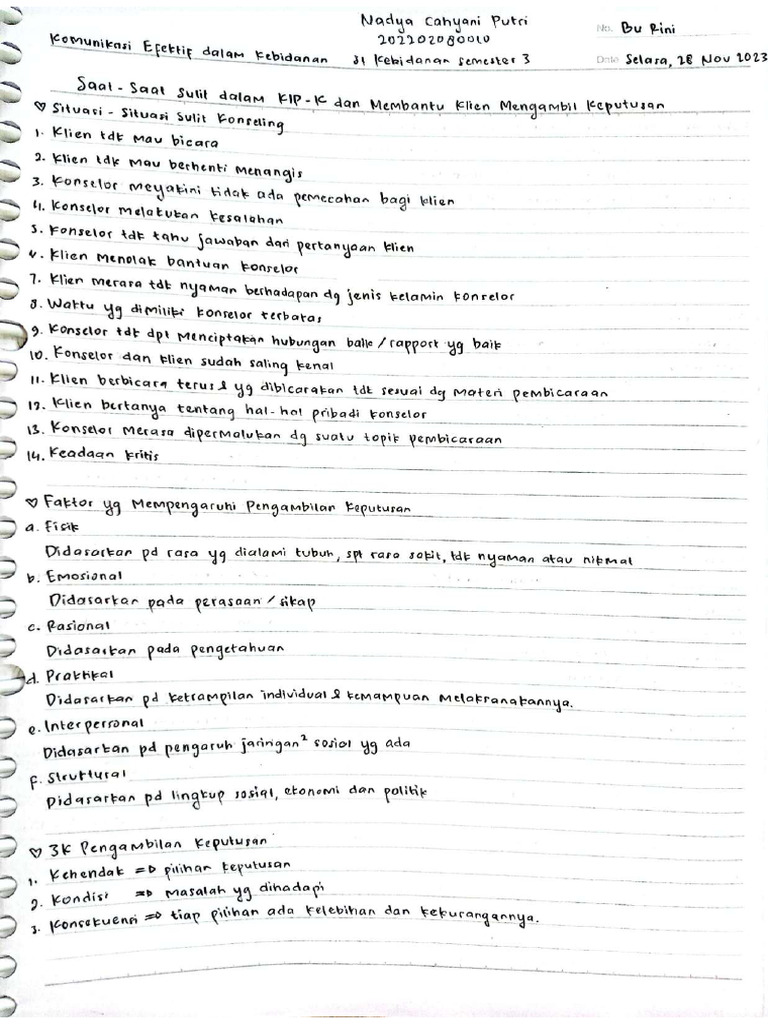 Nadya Cahyani Putri
202202080010
No. Bu Rini
Komunikasi Efektif dalam Kebidanan S1 Kebidanan semester 3
Date Selasa, 28 Nov 2023
Saat-Saat Sulit dalam KIP-K dan Membantu Klien Mengambil Keputusan
♡ Situasi - Situasi Sulit Konseling
1. Klien tdk mau bicara
2. Klien tdk mau berhenti menangis
3. Konselor meyakini tidak ada pemecahan bagi klien
4. Konselor melakukan kesalahan
5. Konselor tdk tahu jawaban dari pertanyaan klien
6. Klien menolak bantuan konselor
7. Klien merasa tdk nyaman berhadapan dg jenis kelamin konselor
8. Waktu yg dimiliki konselor terbatas
9. Konselor tdk dpt menciptakan hubungan baik / rapport yg baik
10. Konselor dan klien sudah saling kenal
11. Klien berbicara terus & yg dibicarakan tdk sesuai dg materi pembicaraan
12. Klien bertanya tentang hal-hal pribadi konselor
13. Konselor merasa dipermalukan dg suatu topik pembicaraan
14. Keadaan kritis
♡ Faktor yg Mempengaruhi Pengambilan Keputusan
a. Fisik
Didasarkan pd rasa yg dialami tubuh, spt rasa sakit, tdk nyaman atau nikmat
b. Emosional
Didasarkan pada perasaan / sikap
c. Rasional
Didasarkan pada pengetahuan
d. Praktikal
Didasarkan pd ketrampilan individual & kemampuan melaksanakannya.
e. Interpersonal
Didasarkan pd pengaruh jaringan² sosial yg ada
f. Struktural
Didasarkan pd lingkup sosial, ekonomi dan politik
♡ 3K Pengambilan Keputusan
1. Kehendak => pilihan keputusan
2. Kondisi => masalah yg dihadapi
3. Konsekuensi => tiap pilihan ada kelebihan dan kekurangannya.